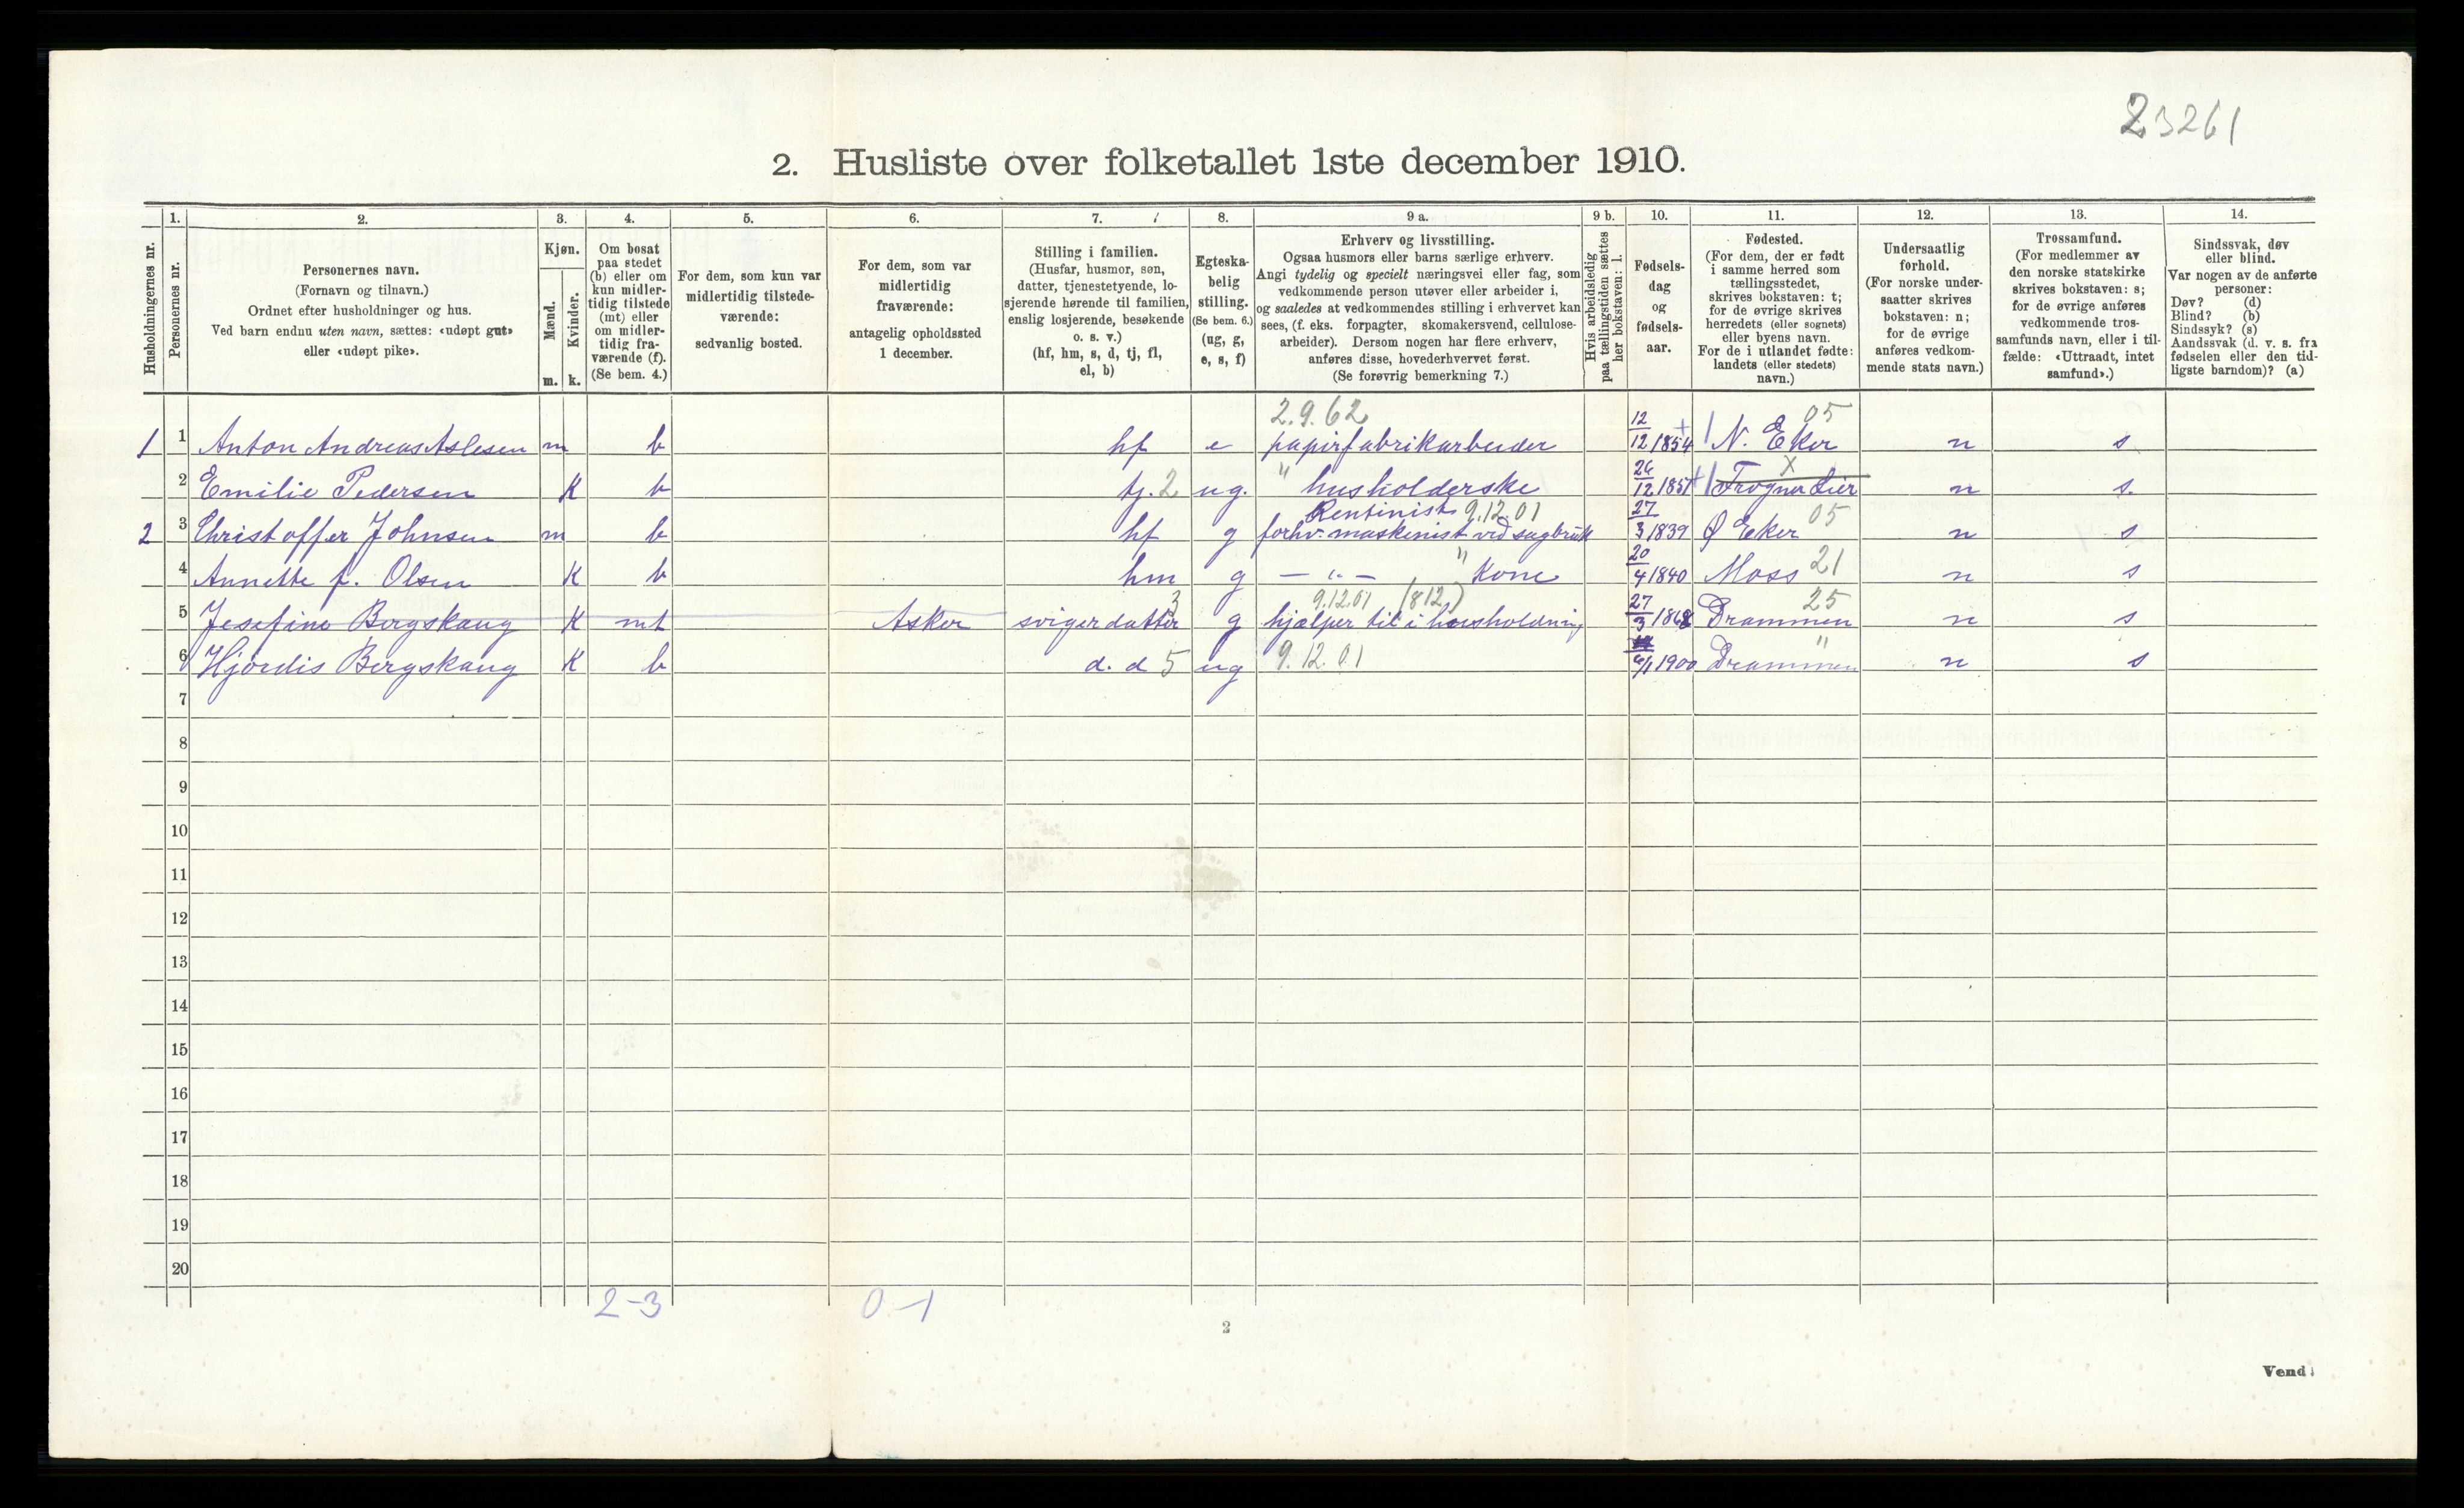 23261
2. Husliste over folketallet 1ste december 1910.
Husholdningernes nr.
1.
Personernes nr.
2.
Personernes navn.
(Fornavn og tilnavn.)
Ordnet efter husholdninger og hus.
Ved barn endnu uten navn, sættes: «udøpt gut»
eller «udøpt pike».
3.
Kjøn.
Mænd.
Kvinder.
m. k.
4.
Om bosat
paa stedet
(b) eller om
kun midler-
tidig tilstede
(mt) eller
om midler-
tidig fra-
værende (f).
(Se bem. 4.)
5.
For dem, som kun var
midlertidig tilstede-
værende:
sedvanlig bosted.
6.
For dem, som var
midlertidig
fraværende:
antagelig opholdssted
1 december.
7.
Stilling i familien.
(Husfar, husmor, søn,
datter, tjenestetyende, lo-
sjerende hørende til familien,
enslig losjerende, besøkende
o. s. v.)
(hf, hm, s, d, tj, fl,
el, b)
8.
Egteska-
belig
stilling.
(Se bem. 6.)
(ug, g,
e, s, f)
9 a.
Erhverv og livsstilling.
Ogsaa husmors eller barns særlige erhverv.
Angi tydelig og specielt næringsvei eller fag, som
vedkommende person utøver eller arbeider i,
og saaledes at vedkommendes stilling i erhvervet kan
sees, (f. eks. forpagter, skomakersvend, cellulose-
arbeider). Dersom nogen har flere erhverv,
anføres disse, hovederhvervet først.
(Se forøvrig bemerkning 7.)
9 b.
Hvis arbeidsledig
paa tællingstiden sættes
her bokstaven: l.
10.
Fødsels-
dag
og
fødsels-
aar.
11.
Fødested.
(For dem, der er født
i samme herred som
tællingsstedet,
skrives bokstaven: t;
for de øvrige skrives
herredets (eller sognets)
eller byens navn.
For de i utlandet fødte:
landets (eller stedets)
navn.)
12.
Undersaatlig
forhold.
(For norske under-
saatter skrives
bokstaven: n;
for de øvrige
anføres vedkom-
mende stats navn.)
13.
Trossamfund.
(For medlemmer av
den norske statskirke
skrives bokstaven: s;
for de øvrige anføres
vedkommende tros-
samfunds navn, eller i til-
fælde: «Uttraadt, intet
samfund».)
14.
Sindssvak, døv
eller blind.
Var nogen av de anførte
personer:
Døv? (d)
Blind? (b)
Sindssyk? (s)
Aandssvak (d. v. s. fra
fødselen eller den tid-
ligste barndom)? (a)
2.9.62 05
1 1 Anton Andreas Aslesen m b hf e papirfabrikarbeider 12/12 1854 N. Eker n s
2 Emilie Pedersen K b tj. 2 ug. " husholderske 26/12 1857 Frogner Lier n s.
Rentinist 9.12.01 05
2 3 Christoffer Johnsen m b hf g forhv. maskinist ved sagbruk 27/3 1839 Ø Eker n s
4 Annette f. Olsen K b hm g — " — " Kone 20/4 1840 Moss 21 n s
3 9.12.01 (812) 25
5 Josefine Bergskaug K mt Asker svigerdatter g hjælper til i husholdning 27/3 1868 Drammen n s
6 Hjördis Bergskaug K b d. d 5 ug 9.12.01 6/1 1900 Drammen " n s
7
8
9
10
11
12
13
14
15
16
17
18
19
20
2-3 0-1
2
Vend!